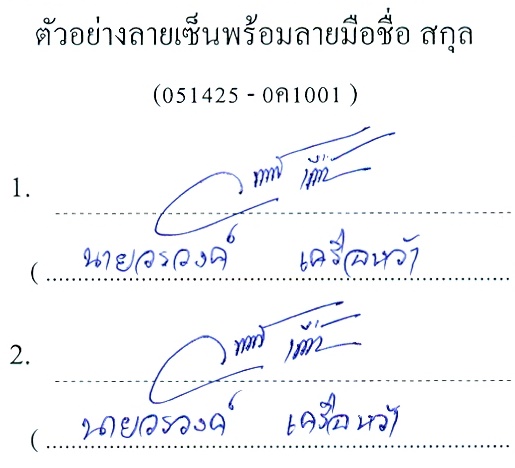 ตัวอย่างลายเซ็นพร้อมลายมือชื่อ สกุล
(051425 - 0ค1001 )
1.
( นายวรวงค์ เครือหว้า
2.
( นายวรวงค์ เครือหว้า